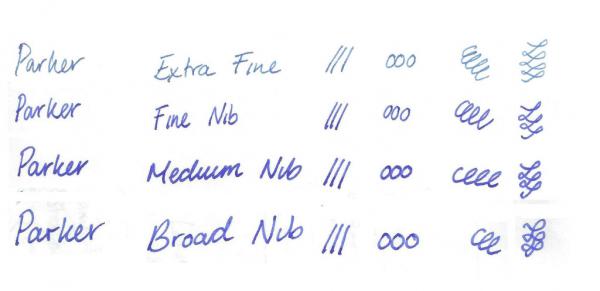 Parker Extra Fine /// ooo
Parker Fine Nib /// ooo
Parker Medium Nib /// ooo
Parker Broad Nib /// ooo